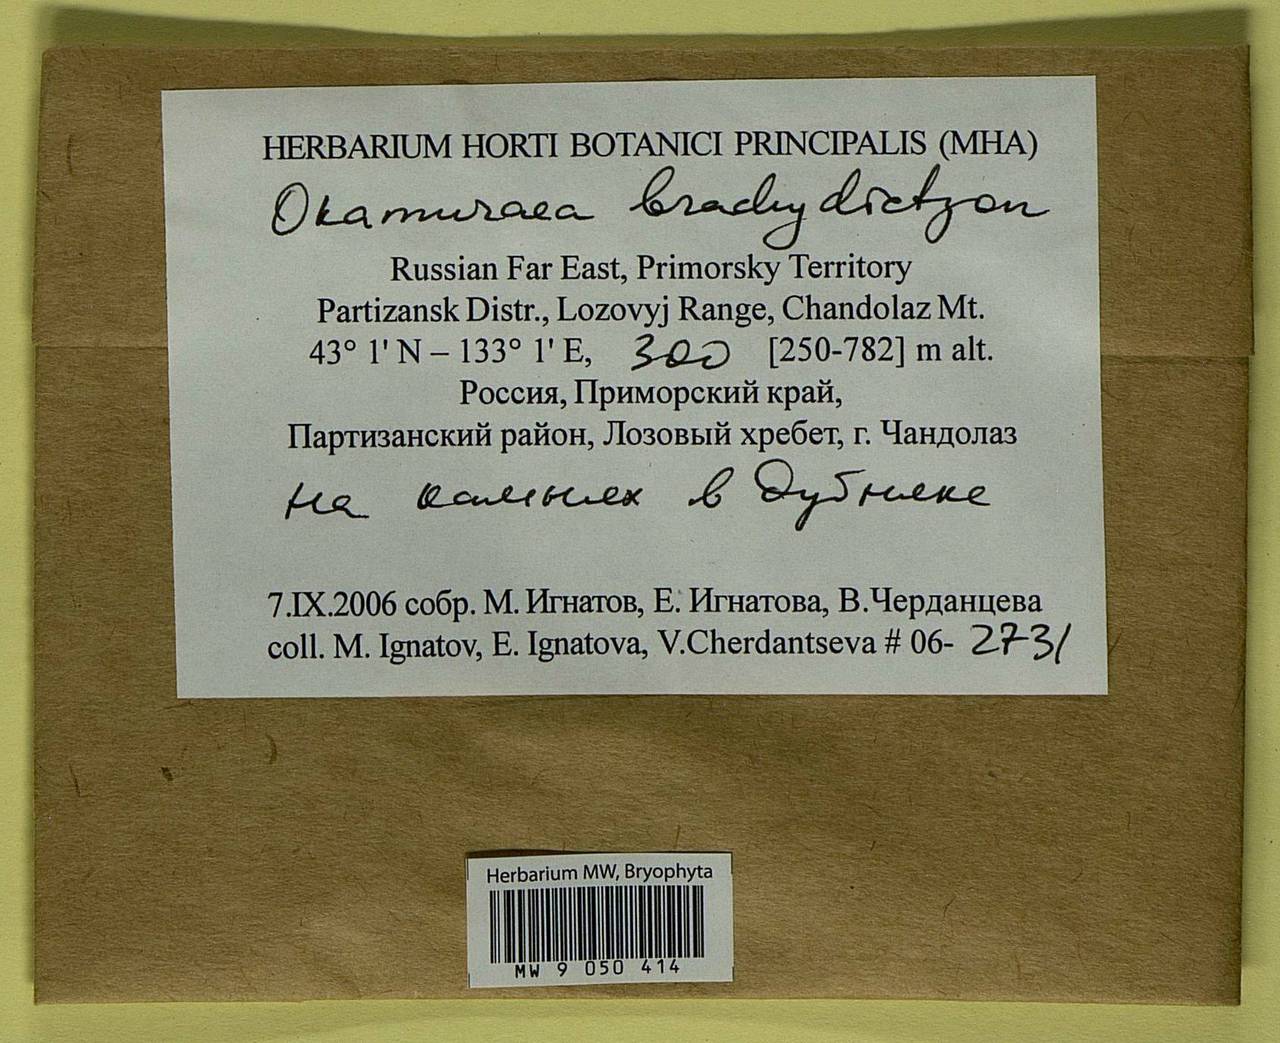 HERBARIUM HORTI BOTANICI PRINCIPALIS (MHA)
Okamuraea brachydictyon
Russian Far East, Primorsky Territory
Partizansk Distr., Lozovyj Range, Chandolaz Mt.
43° 1' N – 133° 1' E, 300 [250-782] m alt.
Россия, Приморский край,
Партизанский район, Лозовый хребет, г. Чандолаз
на камнях в дубняке
7.IX.2006 собр. М. Игнатов, Е. Игнатова, В.Черданцева
coll. M. Ignatov, E. Ignatova, V.Cherdantseva # 06- 2731
Herbarium MW, Bryophyta
MW 9 050 414